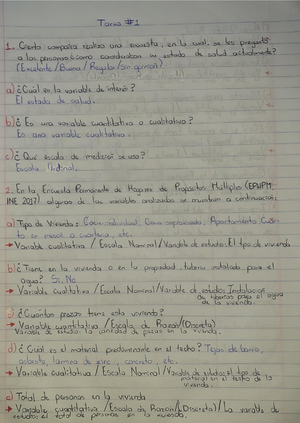 Tarea #1
1. Cierta compañía realiza una encuesta, en la cual, se les preguntó
a las personas ¿cómo consideraban su estado de salud actualmente?
(Excelente / Buena / Regular / Sin opinión)
a) ¿Cuál es la variable de interés?
El estado de salud.
b) ¿Es una variable cuantitativa o cualitativa?
Es una variable cualitativa.
c) ¿Qué escala de medición se usó?
Escala Ordinal.
2. En la Encuesta Permanente de Hogares de Propósitos Múltiples (EPHPM,
INE 2017) algunas de las variables analizadas se muestran a continuación:
a) Tipo de Vivienda: Casa individual, Casa improvisada, Apartamento, Cuar-
to en mesón o cuartería, etc.
→ Variable cualitativa / Escala Nominal / Variable de estudio: El tipo de vivienda
b) ¿Tiene en la vivienda o en la propiedad tubería instalada para el
agua? Si, No
→ Variable Cualitativa / Escala Nominal / Variable de estudio: Instalación
de tuberías para el agua
de la vivienda.
c) ¿Cuántas piezas tiene esta vivienda?
→ Variable cuantitativa / Escala de Razón / (Discreta)
Variable de estudio: la cantidad de piezas en la vivienda.
d) ¿Cuál es el material predominante en el techo? Tejas de barro,
asbesto, lámina de zinc, concreto, etc.
→ Variable cualitativa / Escala Nominal / Variable de estudio: El tipo de
material en el techo de la
vivienda.
e) Total de personas en la vivienda
→ Variable cuantitativa / Escala de Razón / (Discreta) / La variable de
estudio: el total de personas en la vivienda.